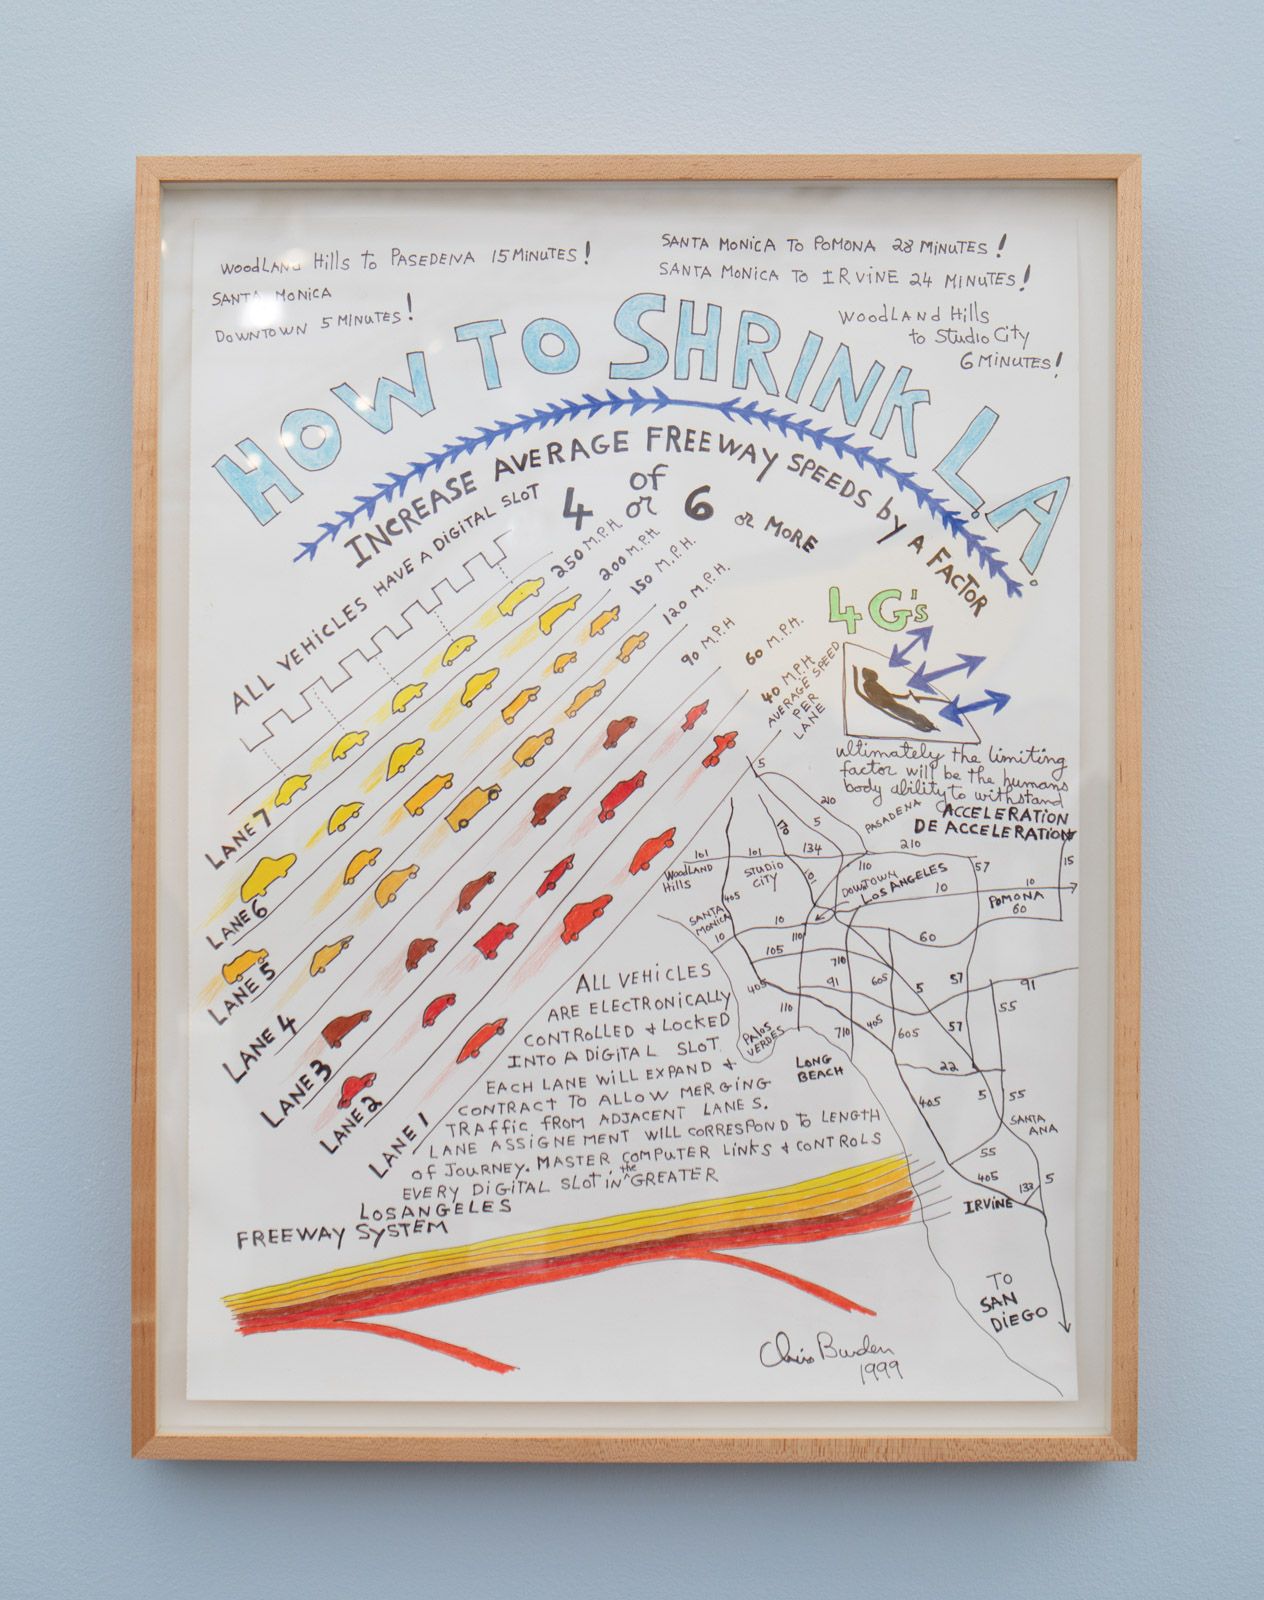 WOODLAND HILLS to PASEDENA 15 MINUTES!
SANTA MONICA
DOWNTOWN 5 MINUTES!
SANTA MONICA TO POMONA 28 MINUTES!
SANTA MONICA TO IRVINE 24 MINUTES!
WOODLAND HILLS
to STUDIO CITY
6 MINUTES!
HOW TO SHRINK L.A.
INCREASE AVERAGE FREEWAY SPEEDS by A FACTOR
of
4 or 6 or MORE
ALL VEHICLES HAVE A DIGITAL SLOT
250 M.P.H.
200 M.P.H.
150 M.P.H.
120 M.P.H.
90 M.P.H
60 M.P.H.
40 M.P.H.
AVERAGE SPEED
PER
LANE
LANE 7
LANE 6
LANE 5
LANE 4
LANE 3
LANE 2
LANE 1
4 G's
ultimately the limiting
factor will be the humans
body ability to withstand
ACCELERATION
DE ACCELERATION
5
210
5
170
PASADENA
101
101
134
110
210
57
15
WOODLAND
HILLS
STUDIO
CITY
DOWNTOWN
LOS ANGELES
10
10
POMONA
60
405
SANTA
MONICA
10
10
110
60
105
710
405
91
605
5
57
91
110
55
PALOS
VERDES
710
405
605
57
LONG
BEACH
22
405
5
55
SANTA
ANA
55
405
133
5
IRVINE
TO
SAN
DIEGO
ALL VEHICLES
ARE ELECTRONICALLY
CONTROLLED & LOCKED
INTO A DIGITAL SLOT
EACH LANE WILL EXPAND &
CONTRACT TO ALLOW MERGING
TRAFFIC FROM ADJACENT LANES.
LANE ASSIGNEMENT WILL CORRESPOND to LENGTH
OF JOURNEY. MASTER COMPUTER LINKS & CONTROLS
EVERY DIGITAL SLOT in the GREATER
LOS ANGELES
FREEWAY SYSTEM
Chris Burden
1999